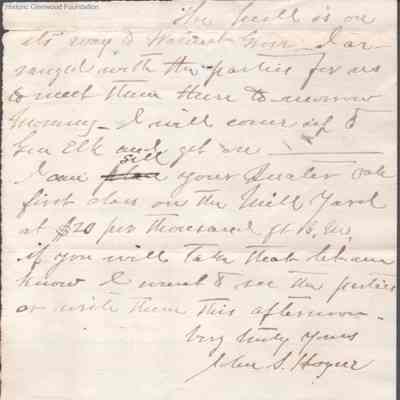 Historic Glenwood Foundation
The Mill is on
its way to Walnut Grove I ar-
ranged with the parties for us
to meet them there to-morrow
morning - I will come up to
Elk and get on
I can sell your Quarter Oak
first class on the Mill Yard
at $20 per thousand ft B.M.
if you will take that let me
know I want to see the parties
or write them this afternoon -
Very truly yours
John S.